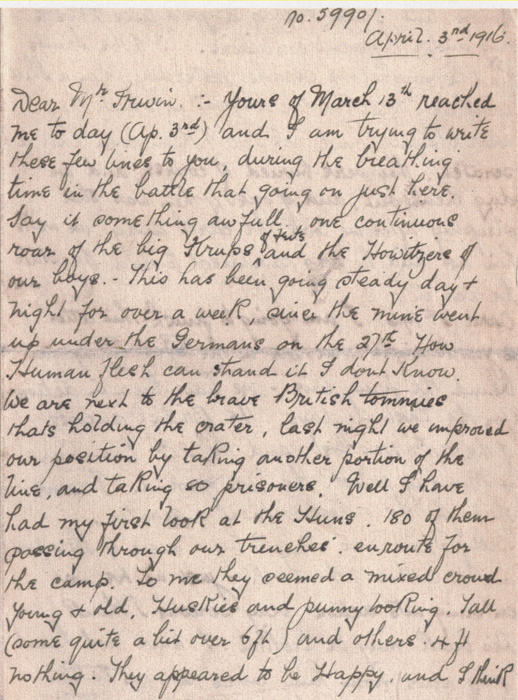 no. 59901.
April. 3rd 1916.
Dear Mr Irwin. :- Yours of March 13th reached
me to day (Ap. 3rd) and I am trying to write
these few lines to you, during the breathing
time in the battle that going on just here.
Say it something awfull, one continuous
roar of the big Krups of Fritz and the Howitzers of
our boys. - This has been going steady day +
night for over a week since the mine went
up under the Germans on the 27th How
Human flesh can stand it I dont Know.
We are next to the brave British tommies
thats holding the crater, last night we improved
our position by taking another portion of the
line, and taking 80 prisoners. Well I have
had my first look at the Huns. 180 of them
passing through our trenches. enroute for
the camp. To me they seemed a mixed crowd
young + old, Huskies and punny looking. Tall
(some quite a bit over 6ft) and others. 4 ft
nothing. They appeared to be Happy, and I think